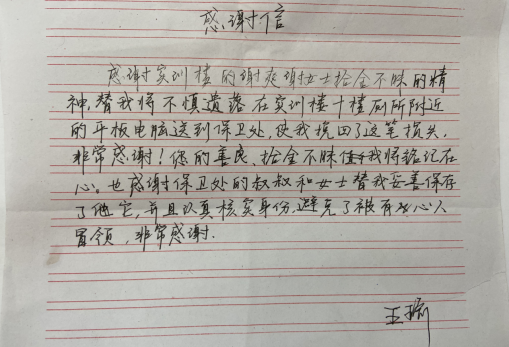 感谢信
感谢实训楼的谢爽谢女士拾金不昧的精
神，替我将不慎遗落在实训楼十楼厕所附近
的平板电脑送到保卫处，使我挽回了这笔损失，
非常感谢！您的善良、拾金不昧我将铭记在
心。也感谢保卫处的叔叔和女士替我妥善保存
了他它，并且认真核实身份，避免了被有心人
冒领，非常感谢.
王瑜